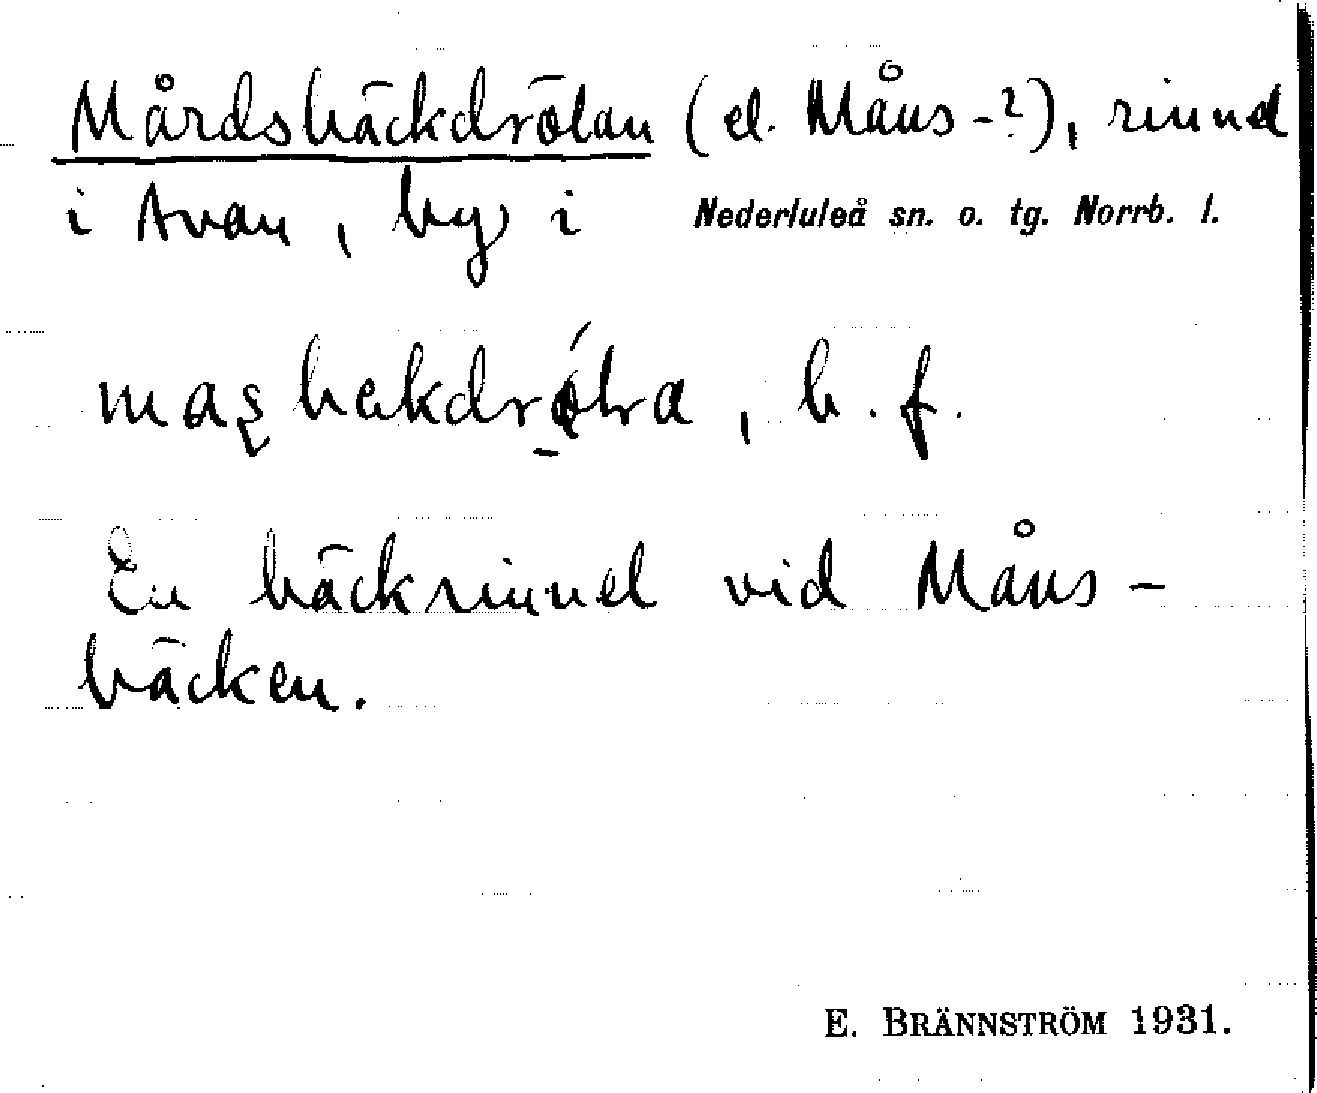 Mårdsbäckdrölan (el. Måns-?), rinnel
i Avan, by i Nederluleå sn. o. tg. Norrb. l.
b. f.
En bäckrinnel vid Måns-
bäcken.
E. BRÄNNSTRÖM 1931.